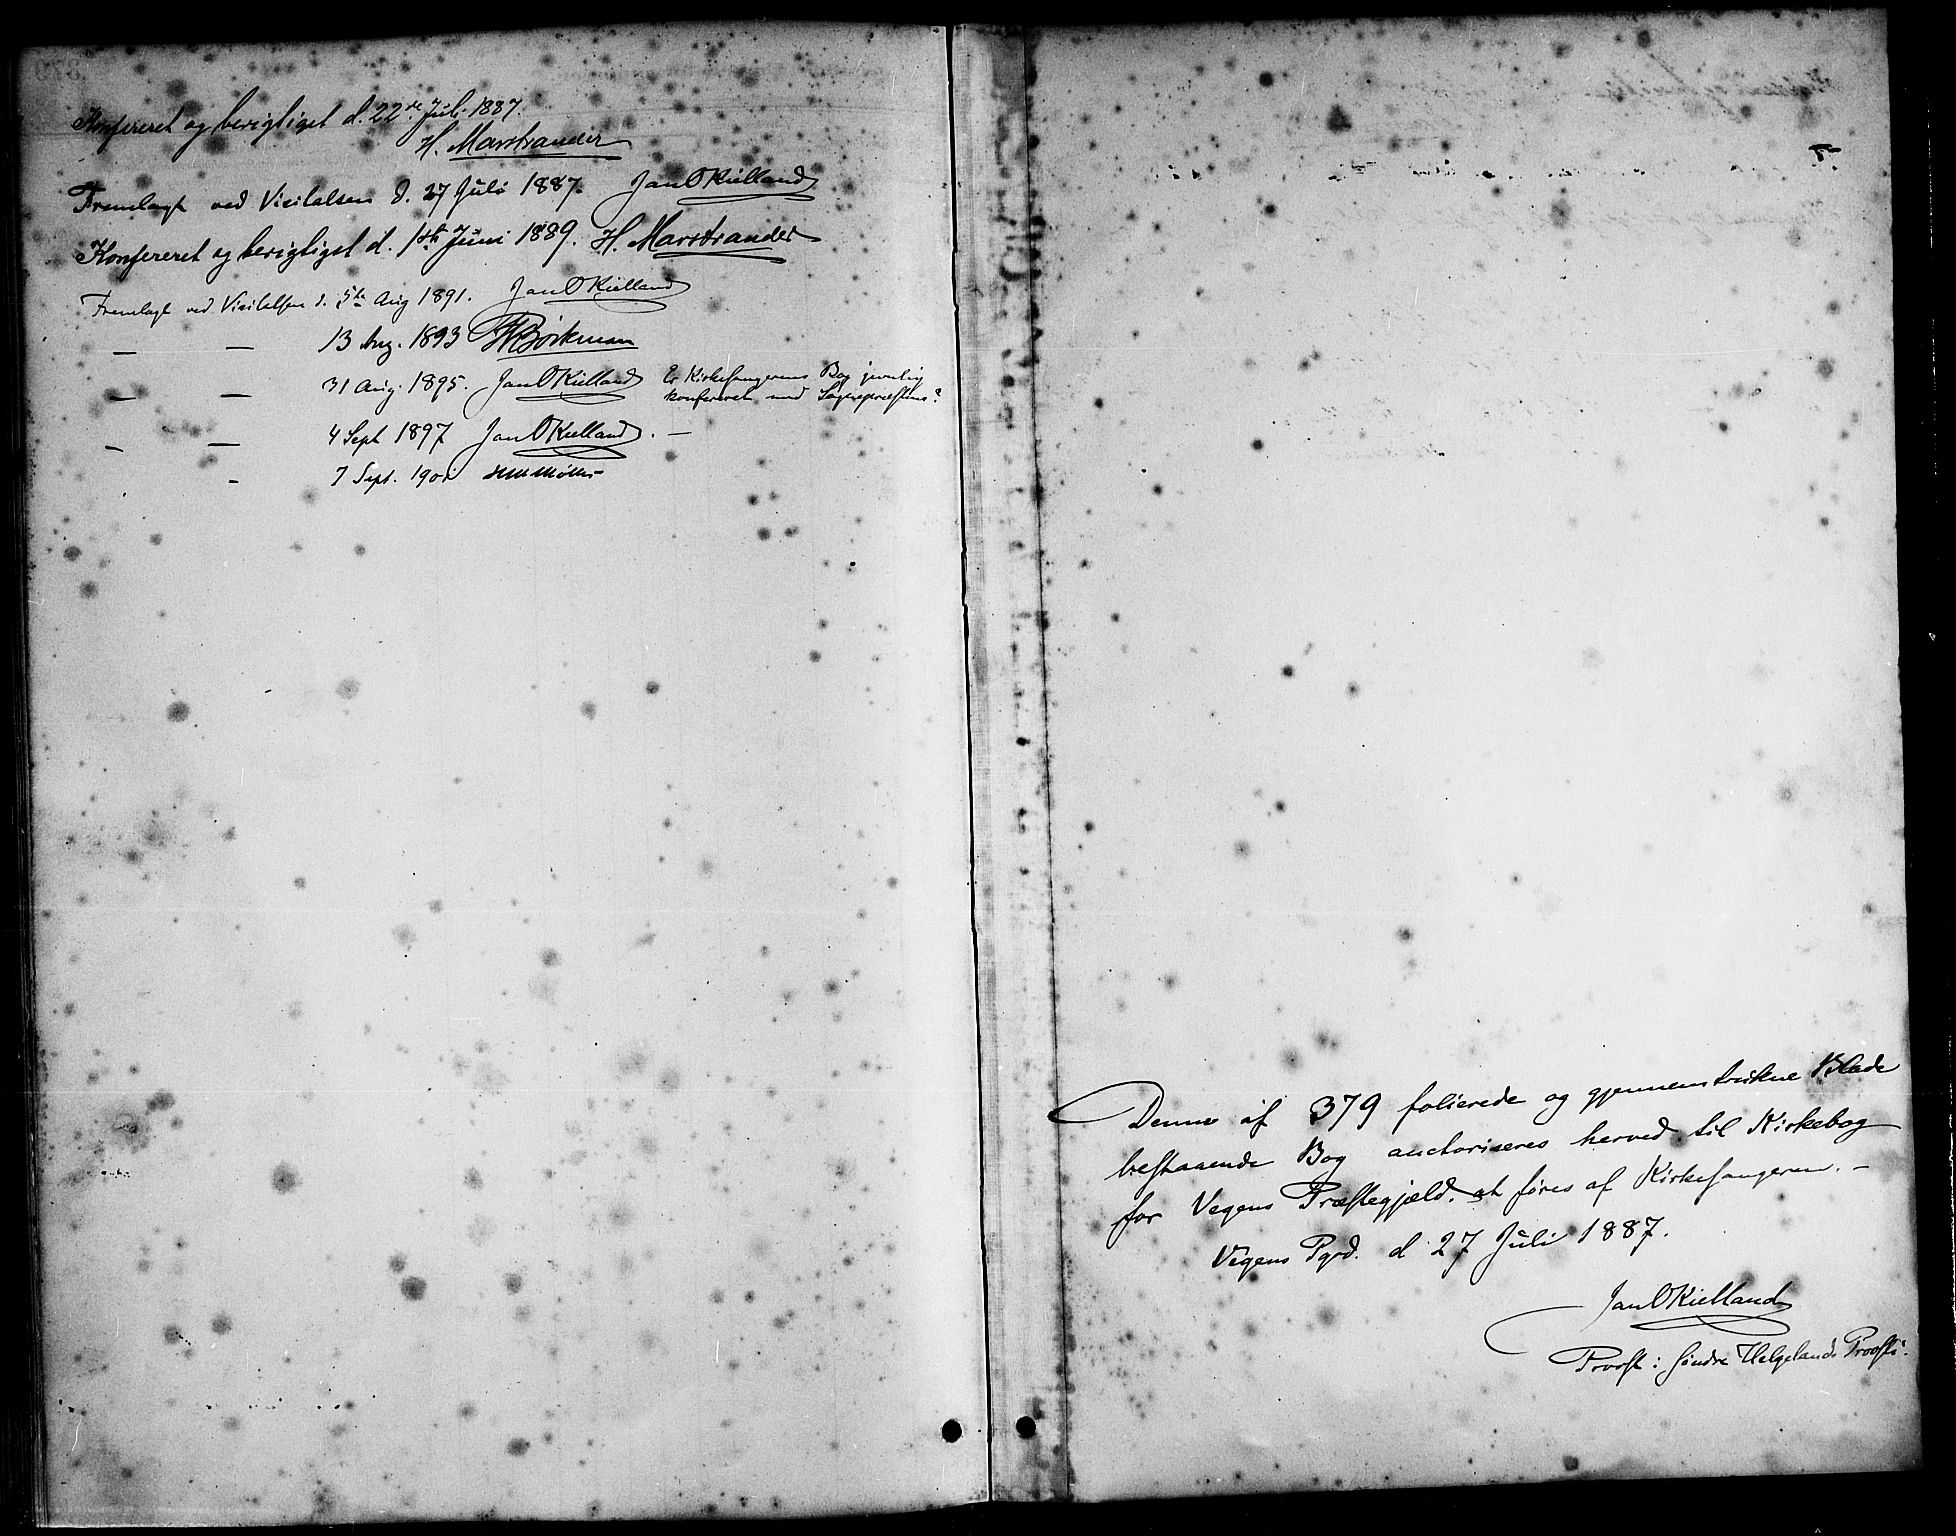 Konfereret og berigtiget d. 22de Juli 1887.
H. Marstrander
Fremlagt ved Visitatsen d. 27 Juli 1887. Jan O Kielland
Konfereret og berigtiget d. 1ste Juni 1889. H. Marstrander
Fremlagt ved Visitatsen d. 5te Aug 1891. Jan O Kielland
— — 13 Aug. 1893 Bøckman
— — 31 Aug. 1895. Jan O Kielland Er Kirkesangerens Bog jevnlig
konfereret med Sognepræstens?
— — 4 Sept 1897 Jan O Kielland. —
- 7 Sept. 1901
Denne af 379 folierede og gjennemtrukne Blade
bestaaende Bog auctoriseres herved til Kirkebog
for Vegens Præstegjæld. at føres af Kirkesangeren. —
Vegens Pgrd. d 27 Juli 1887.
Jan O Kielland
Provst i søndre Helgelands Provsti.